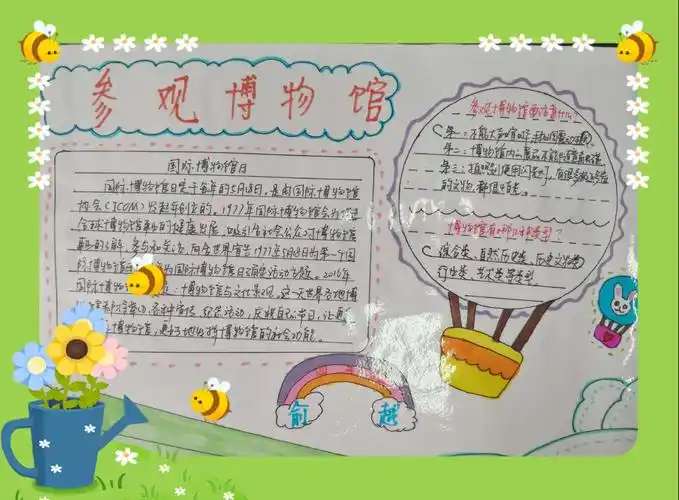 参观博物馆
国际博物馆日
国际博物馆日定于每年的5月18日,是由国际博物馆
协会(ICOM)发起并创立的。1977年国际博物馆协会为促进
全球博物馆事业的健康发展,吸引全社会公众对博物馆
事业的了解、参与和关注,向全世界宣告1977年5月18日为第一个国
际博物馆日
国际博物馆日活动主题。2016年
国际博物馆
:博物馆与文化景观。这一天世界各地博
各种宣传、纪念活动,庆祝自己的节日,让更
博物馆,更好地发挥博物馆的社会功能。
参观博物馆要注意什么?
第一:不能大声喧哗
第二:博物馆内
第三:
的文物,都很珍贵。
博物馆有哪些类型?
综合类、自然历史类、历史文物类、
行业类、艺术类等类型
俞越